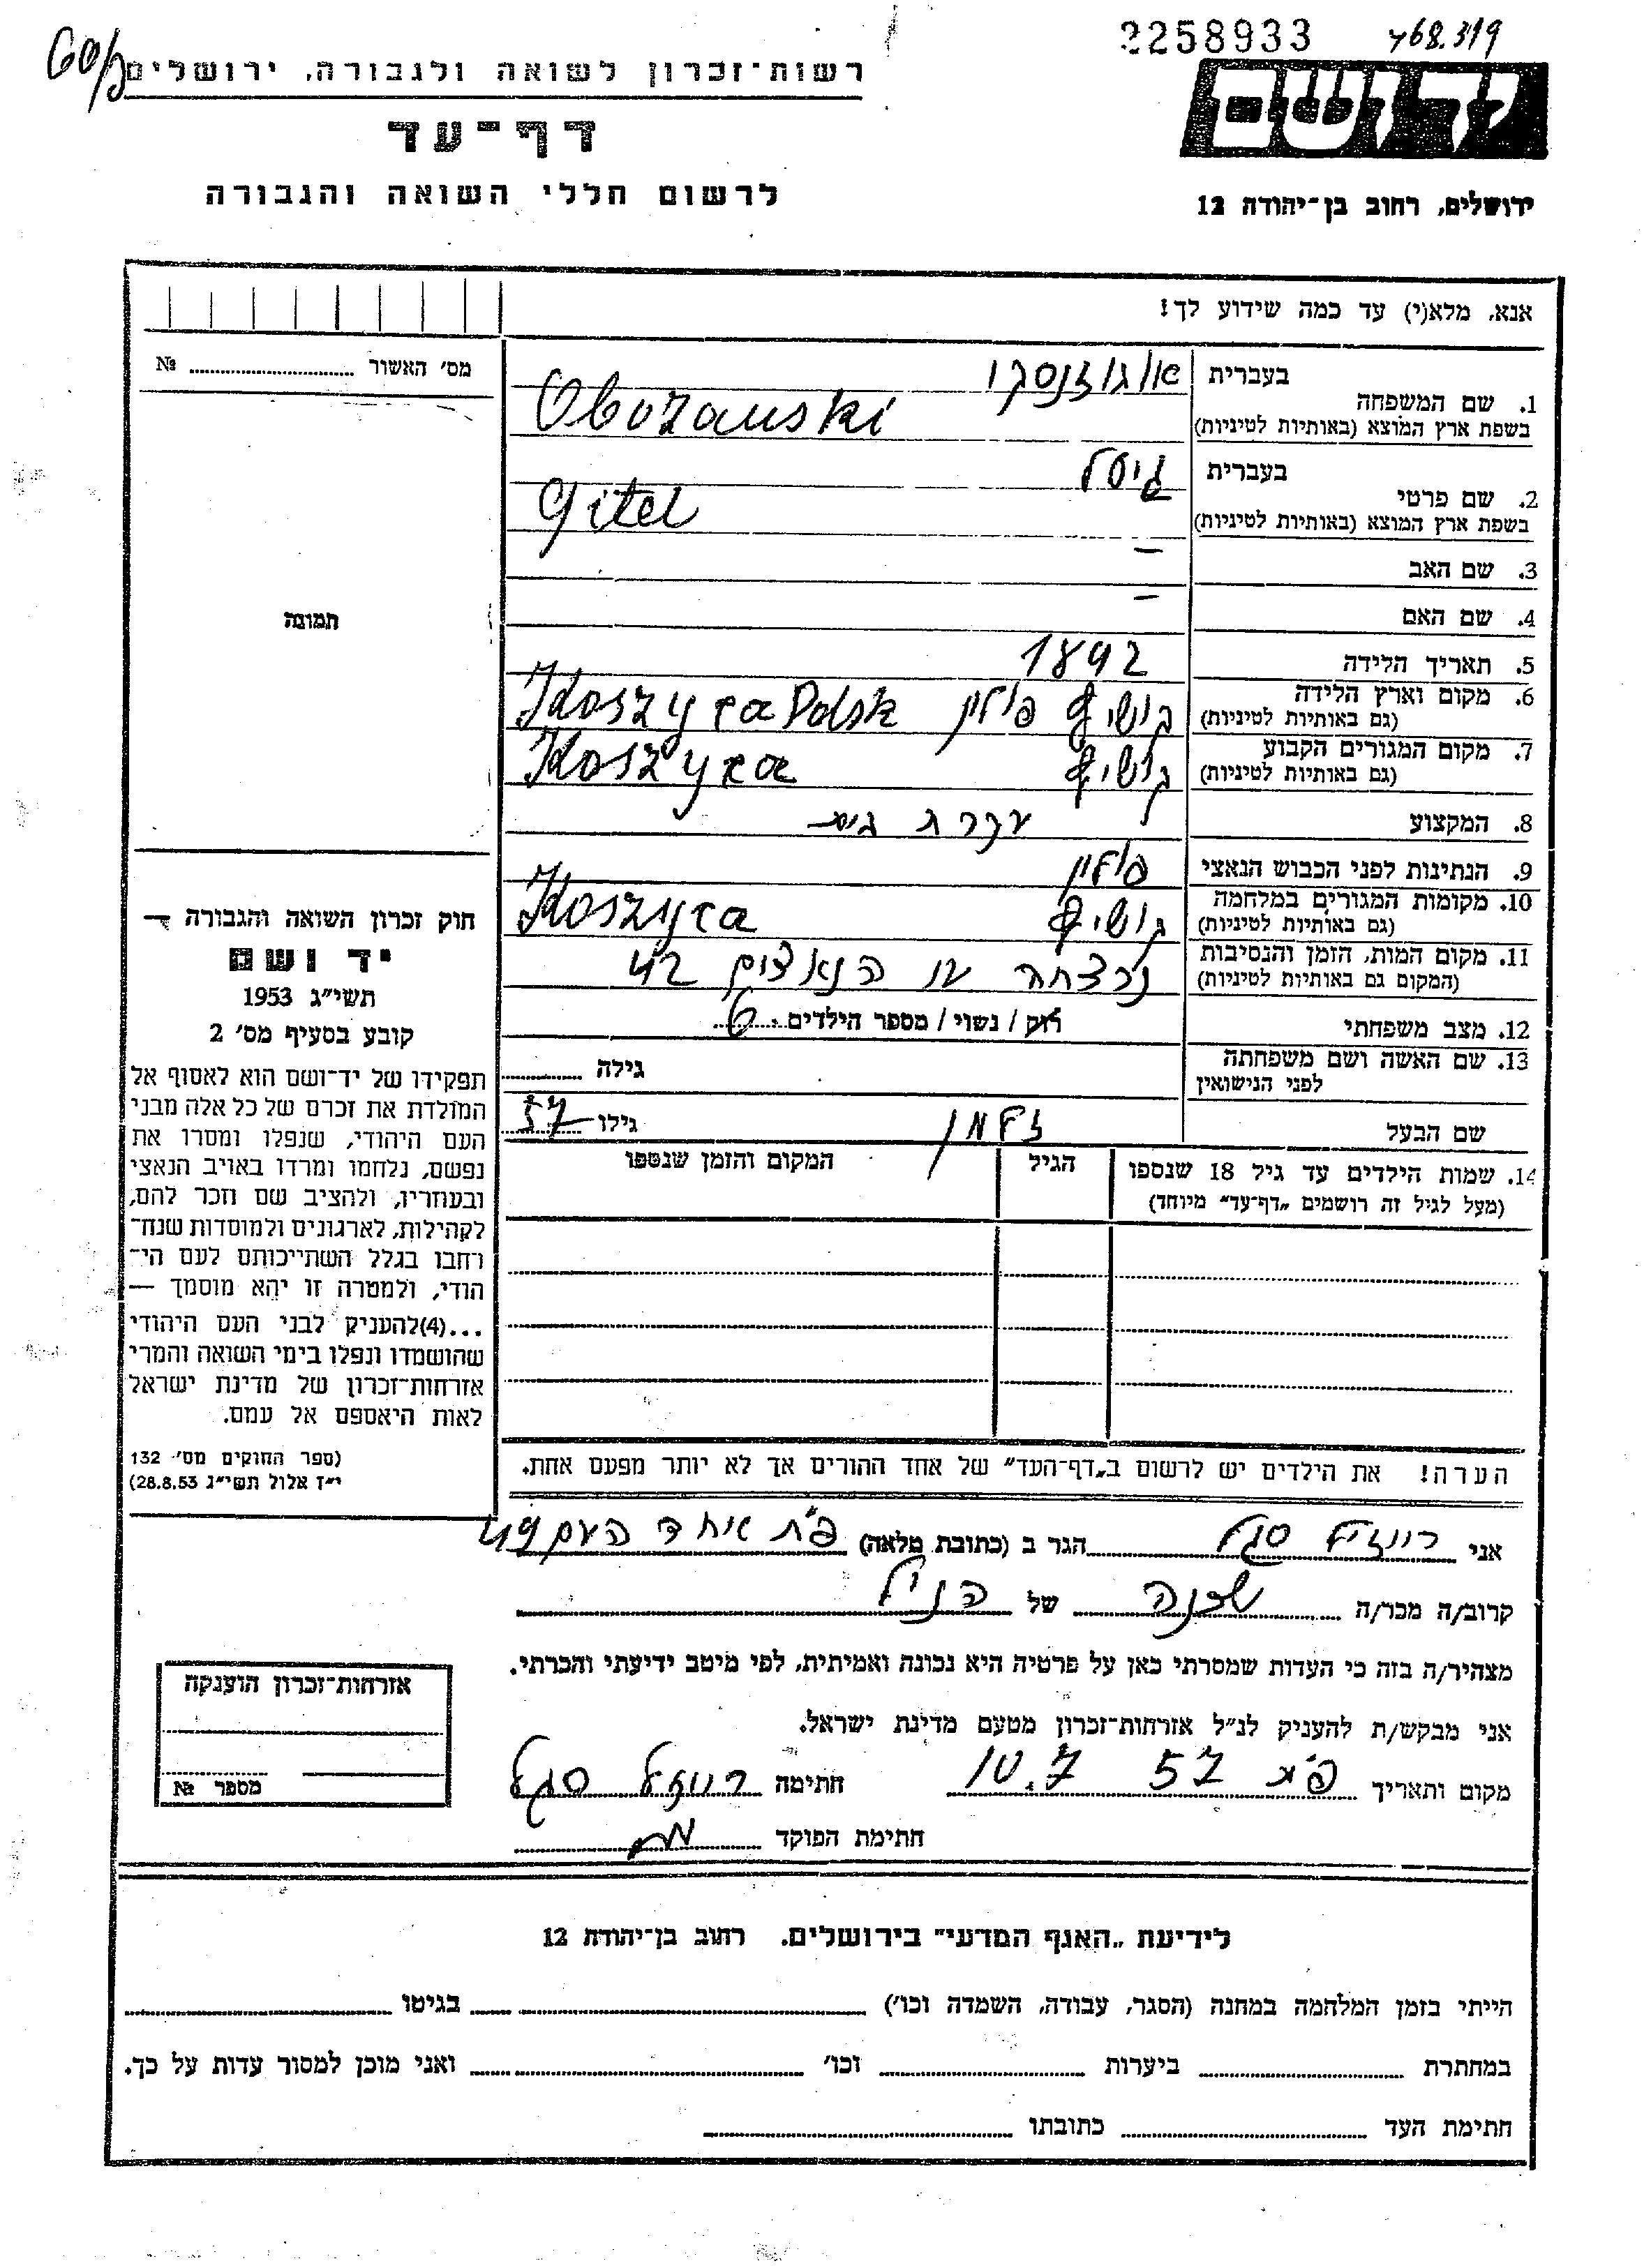 2258933
768.319
60/5
רשות־זכרון לשואה ולגבורה, ירושלים
ידושם
דף־עד
לרשום חללי השואה והגבורה
ירושלים, רחוב בן־יהודה 12
אנא, מלא(י) עד כמה שידוע לך!
מס' האשור № ........
1. שם המשפחה
בעברית
בשפת ארץ המוצא (באותיות לטיניות)
Obozanski
2. שם פרטי
בעברית גיטל
בשפת ארץ המוצא (באותיות לטיניות)
Gitel
3. שם האב –
4. שם האם –
תמונה
5. תאריך הלידה 1892
6. מקום וארץ הלידה
(גם באותיות לטיניות)
פולין Koszyca Polsk
7. מקום המגורים הקבוע
(גם באותיות לטיניות)
Koszyca
8. המקצוע עקרת בית
9. הנתינות לפני הכבוש הנאצי פולין
10. מקומות המגורים במלחמה
(גם באותיות לטיניות)
Koszyca
11. מקום המות, הזמן והנסיבות
(המקום גם באותיות לטיניות)
נרצחה ע"י הנאצים 42
12. מצב משפחתי רוק / נשוי / מספר הילדים 6
13. שם האשה ושם משפחתה
לפני הנישואין
גילה ........
שם הבעל זלמן גילו 57
14. שמות הילדים עד גיל 18 שנספו
(מעל לגיל זה רושמים „דף־עד" מיוחד)
הגיל
המקום והזמן שנספו
חוק זכרון השואה והגבורה –
יד ושם
תשי"ג 1953
קובע בסעיף מס' 2
תפקידו של יד־ושם הוא לאסוף אל
המולדת את זכרם של כל אלה מבני
העם היהודי, שנפלו ומסרו את
נפשם, נלחמו ומרדו באויב הנאצי
ובעוזריו, ולהציב שם וזכר להם,
לקהילות, לארגונים ולמוסדות שנח־
רחבו בגלל השתייכותם לעם הי־
הודי, ולמטרה זו יהא מוסמך —
...(4)להעניק לבני העם היהודי
שהושמדו ונפלו בימי השואה והמרי
אזרחות־זכרון של מדינת ישראל
לאות היאספם אל עמם.
(ספר החוקים מס' 132
י"ז אלול תשי"ג 28.8.53)
הערה! את הילדים יש לרשום ב„דף־העד" של אחד ההורים אך לא יותר מפעם אחת.
אני רוזיל סגל הגר ב (כתובת מלאה) פ"ת אחד העם 49
קרוב/ה מכר/ה שכנה של הנ"ל
מצהיר/ה בזה כי העדות שמסרתי כאן על פרטיה היא נכונה ואמיתית, לפי מיטב ידיעתי והכרתי.
אני מבקש/ת להעניק לנ"ל אזרחות־זכרון מטעם מדינת ישראל.
מקום ותאריך פ"ת 57 10.7 חתימה רוזיל סגל
חתימת הפוקד
אזרחות־זכרון הוענקה
מספר №
לידיעת „האגף המדעי" בירושלים. רחוב בן־יהודה 12
הייתי בזמן המלחמה במחנה (הסגר, עבודה, השמדה וכו') ........ בגיטו ........
במחתרת ........ ביערות ........ וכו' ........ ואני מוכן למסור עדות על כך.
חתימת העד ........ כתובתו ........